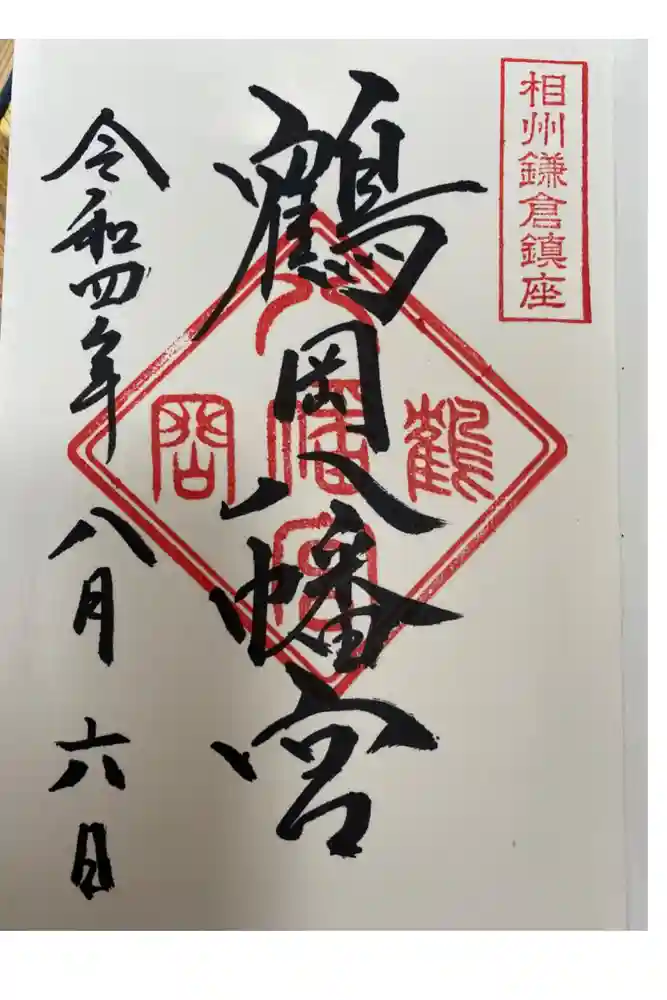 相州鎌倉鎮座
鶴岡八幡宮
鶴
岡
八幡宮
令和四年八月六日